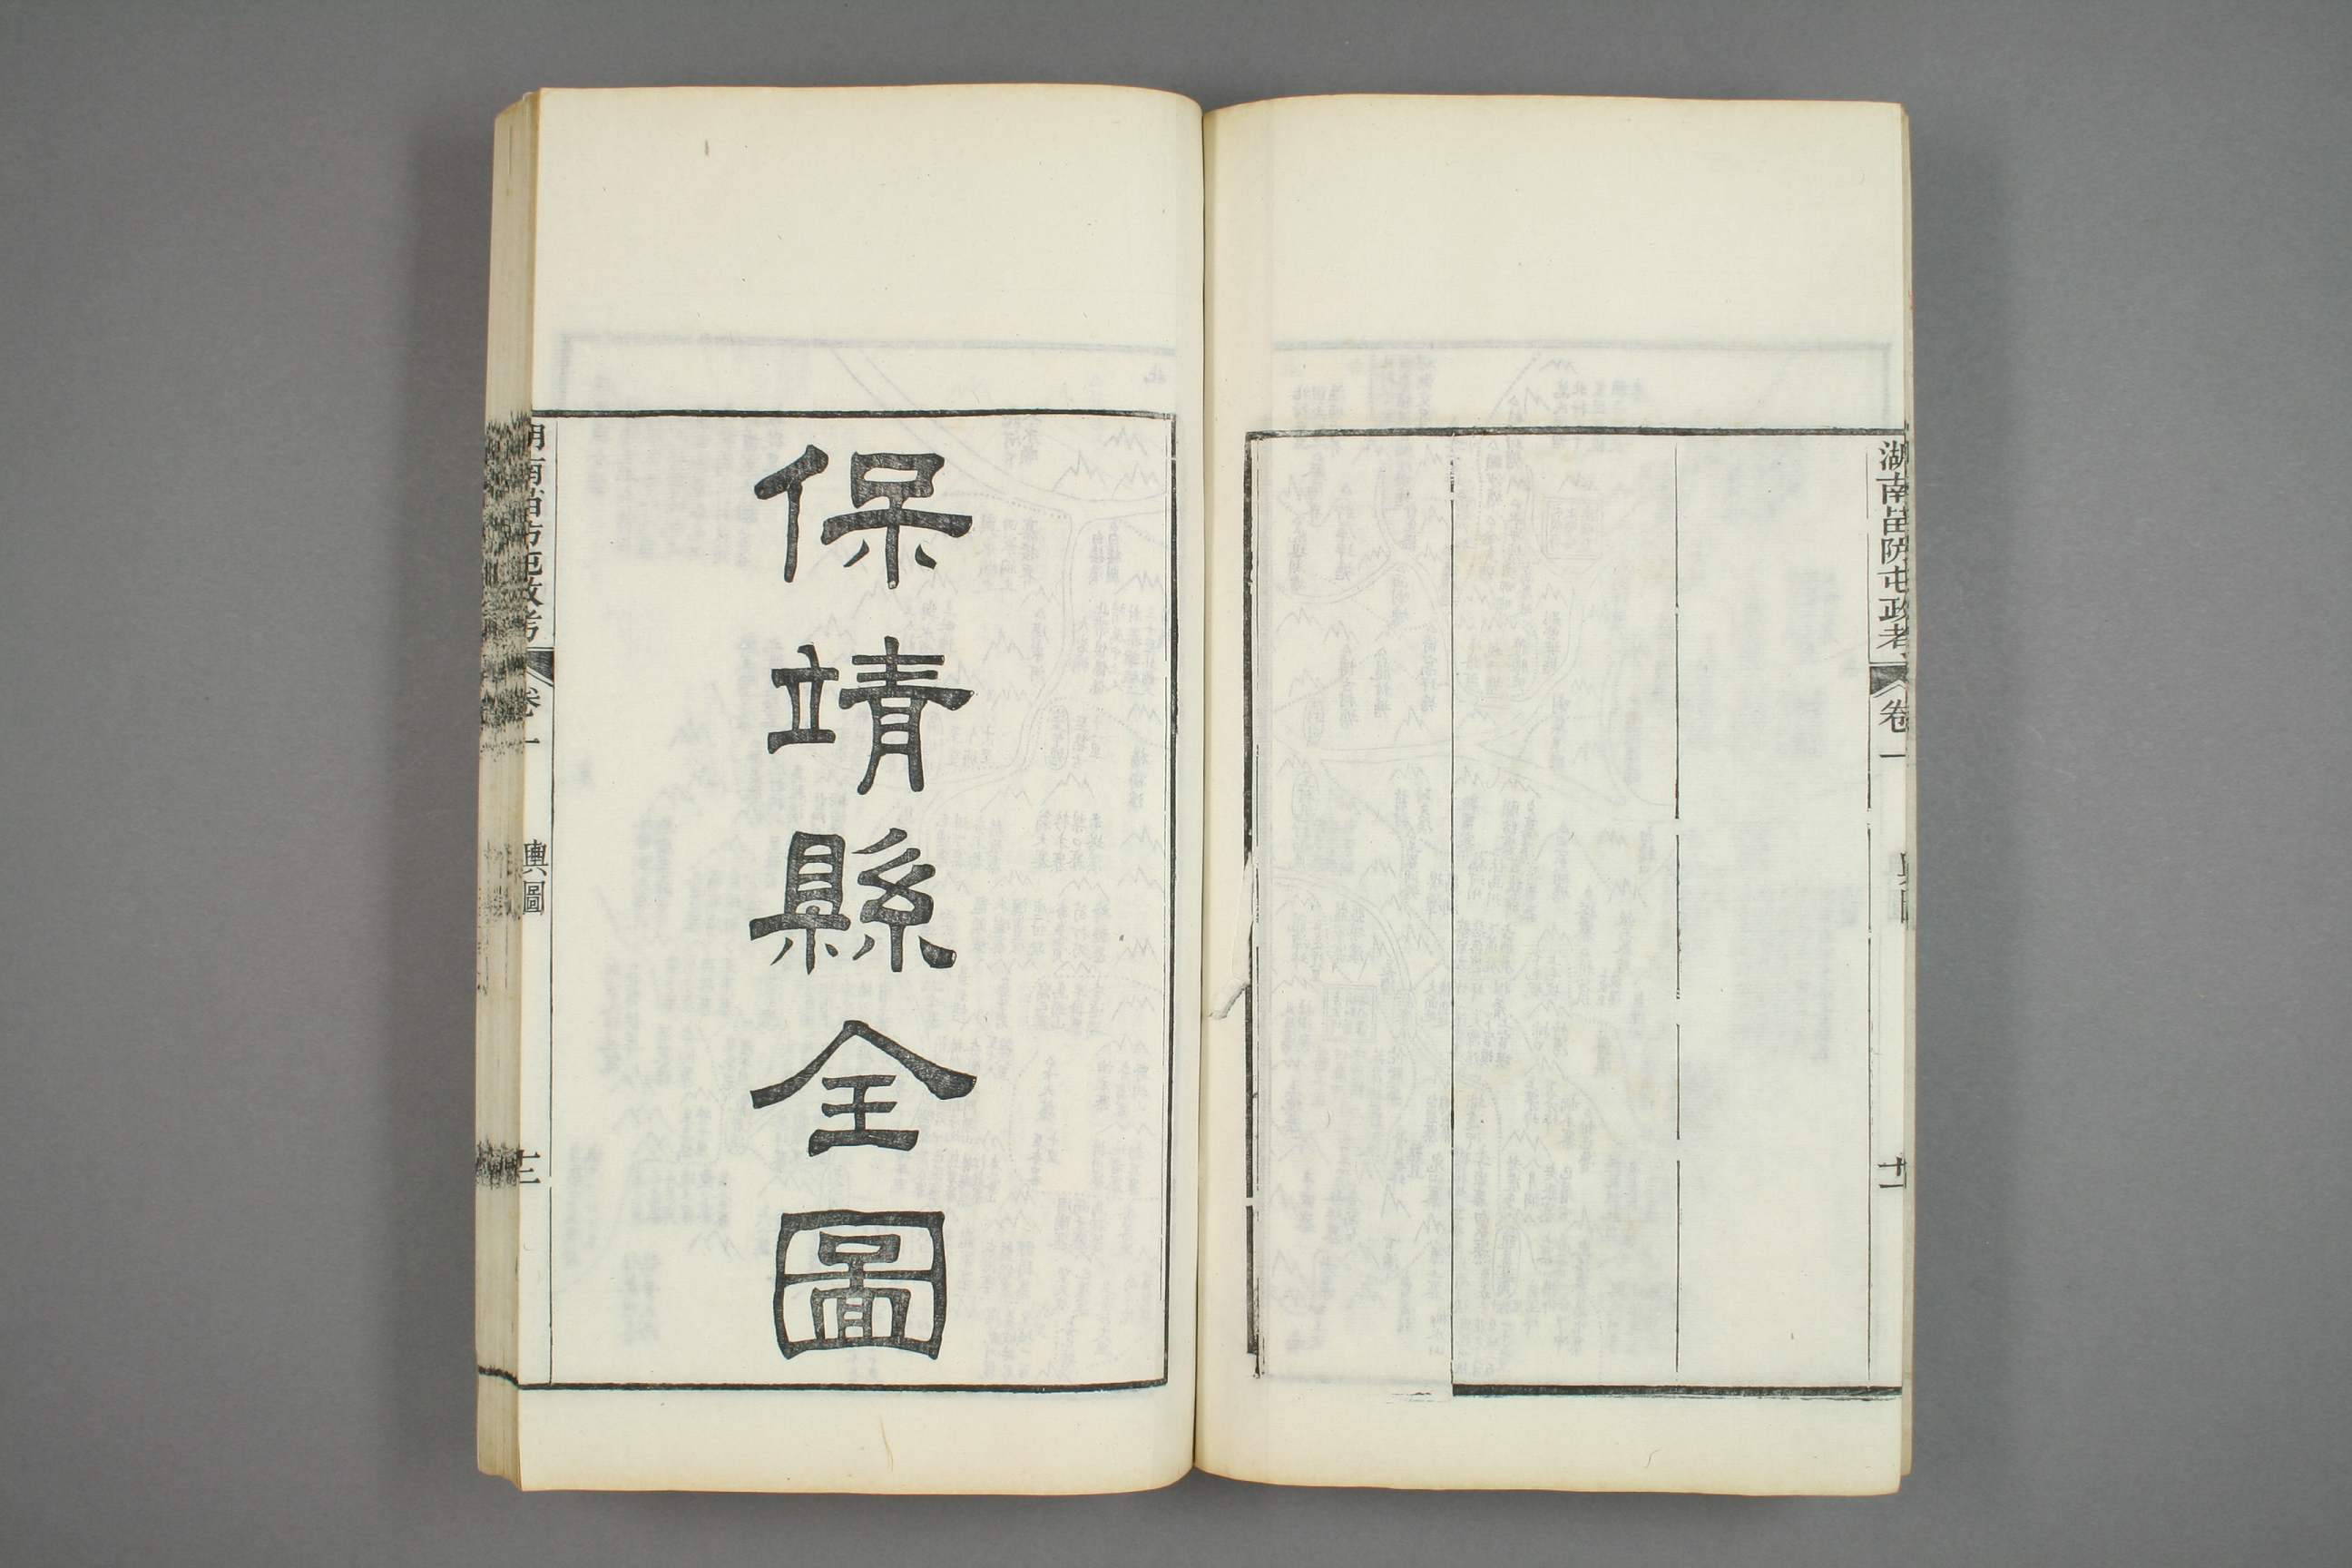 湖南苗防屯政考
卷一
輿圖
十二
保靖縣全圖
湖南苗防屯政考
卷一
輿圖
十三